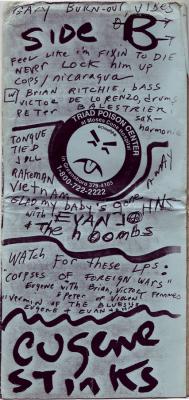 GARY BURN-OUT VIBES
SIDE B
Feel Like i'm FIXIN TO DIE
NEVER LOCK him up
COPS/nicaragua
W/ BRIAN RITCHIE, BASS
VICTOR DE LORENZO, drums
PETER BALESTRIERI
sax
harmonica
TRIAD POISON CENTER
at Moses Cone Hospital
In Greensboro 379-4105
1-800-722-2222
TONGUE
TIED
JILL
RAKEMAN
VIETNAM
GLAD my baby's gone
with EVAN JOHNS
& the h bombs
WATCH For these LPs:
"CORPSES OF FOREIGN WARS"
Eugene with Brian, Victor
& Peter of Violent Femmes
VERMIN OF THE BLUES
EUGENE + EVAN
EUGENE
STINKS